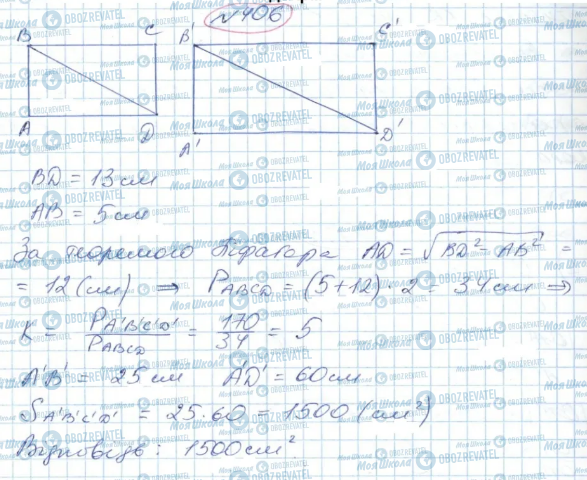 №406
B C B' C'
A D A' D'
BD = 13 см
AB = 5 см
За теоремою Піфагора AD = √(BD² - AB²) =
= 12 (см) ⇒ P ABCD = (5+12)·2 = 34 см ⇒
K = P A'B'C'D' / P ABCD = 170/34 = 5
A'B' = 25 см A'D' = 60 см
S A'B'C'D' = 25·60 = 1500 (см²)
Відповідь: 1500 см².
Моя Школа OBOZREVATEL